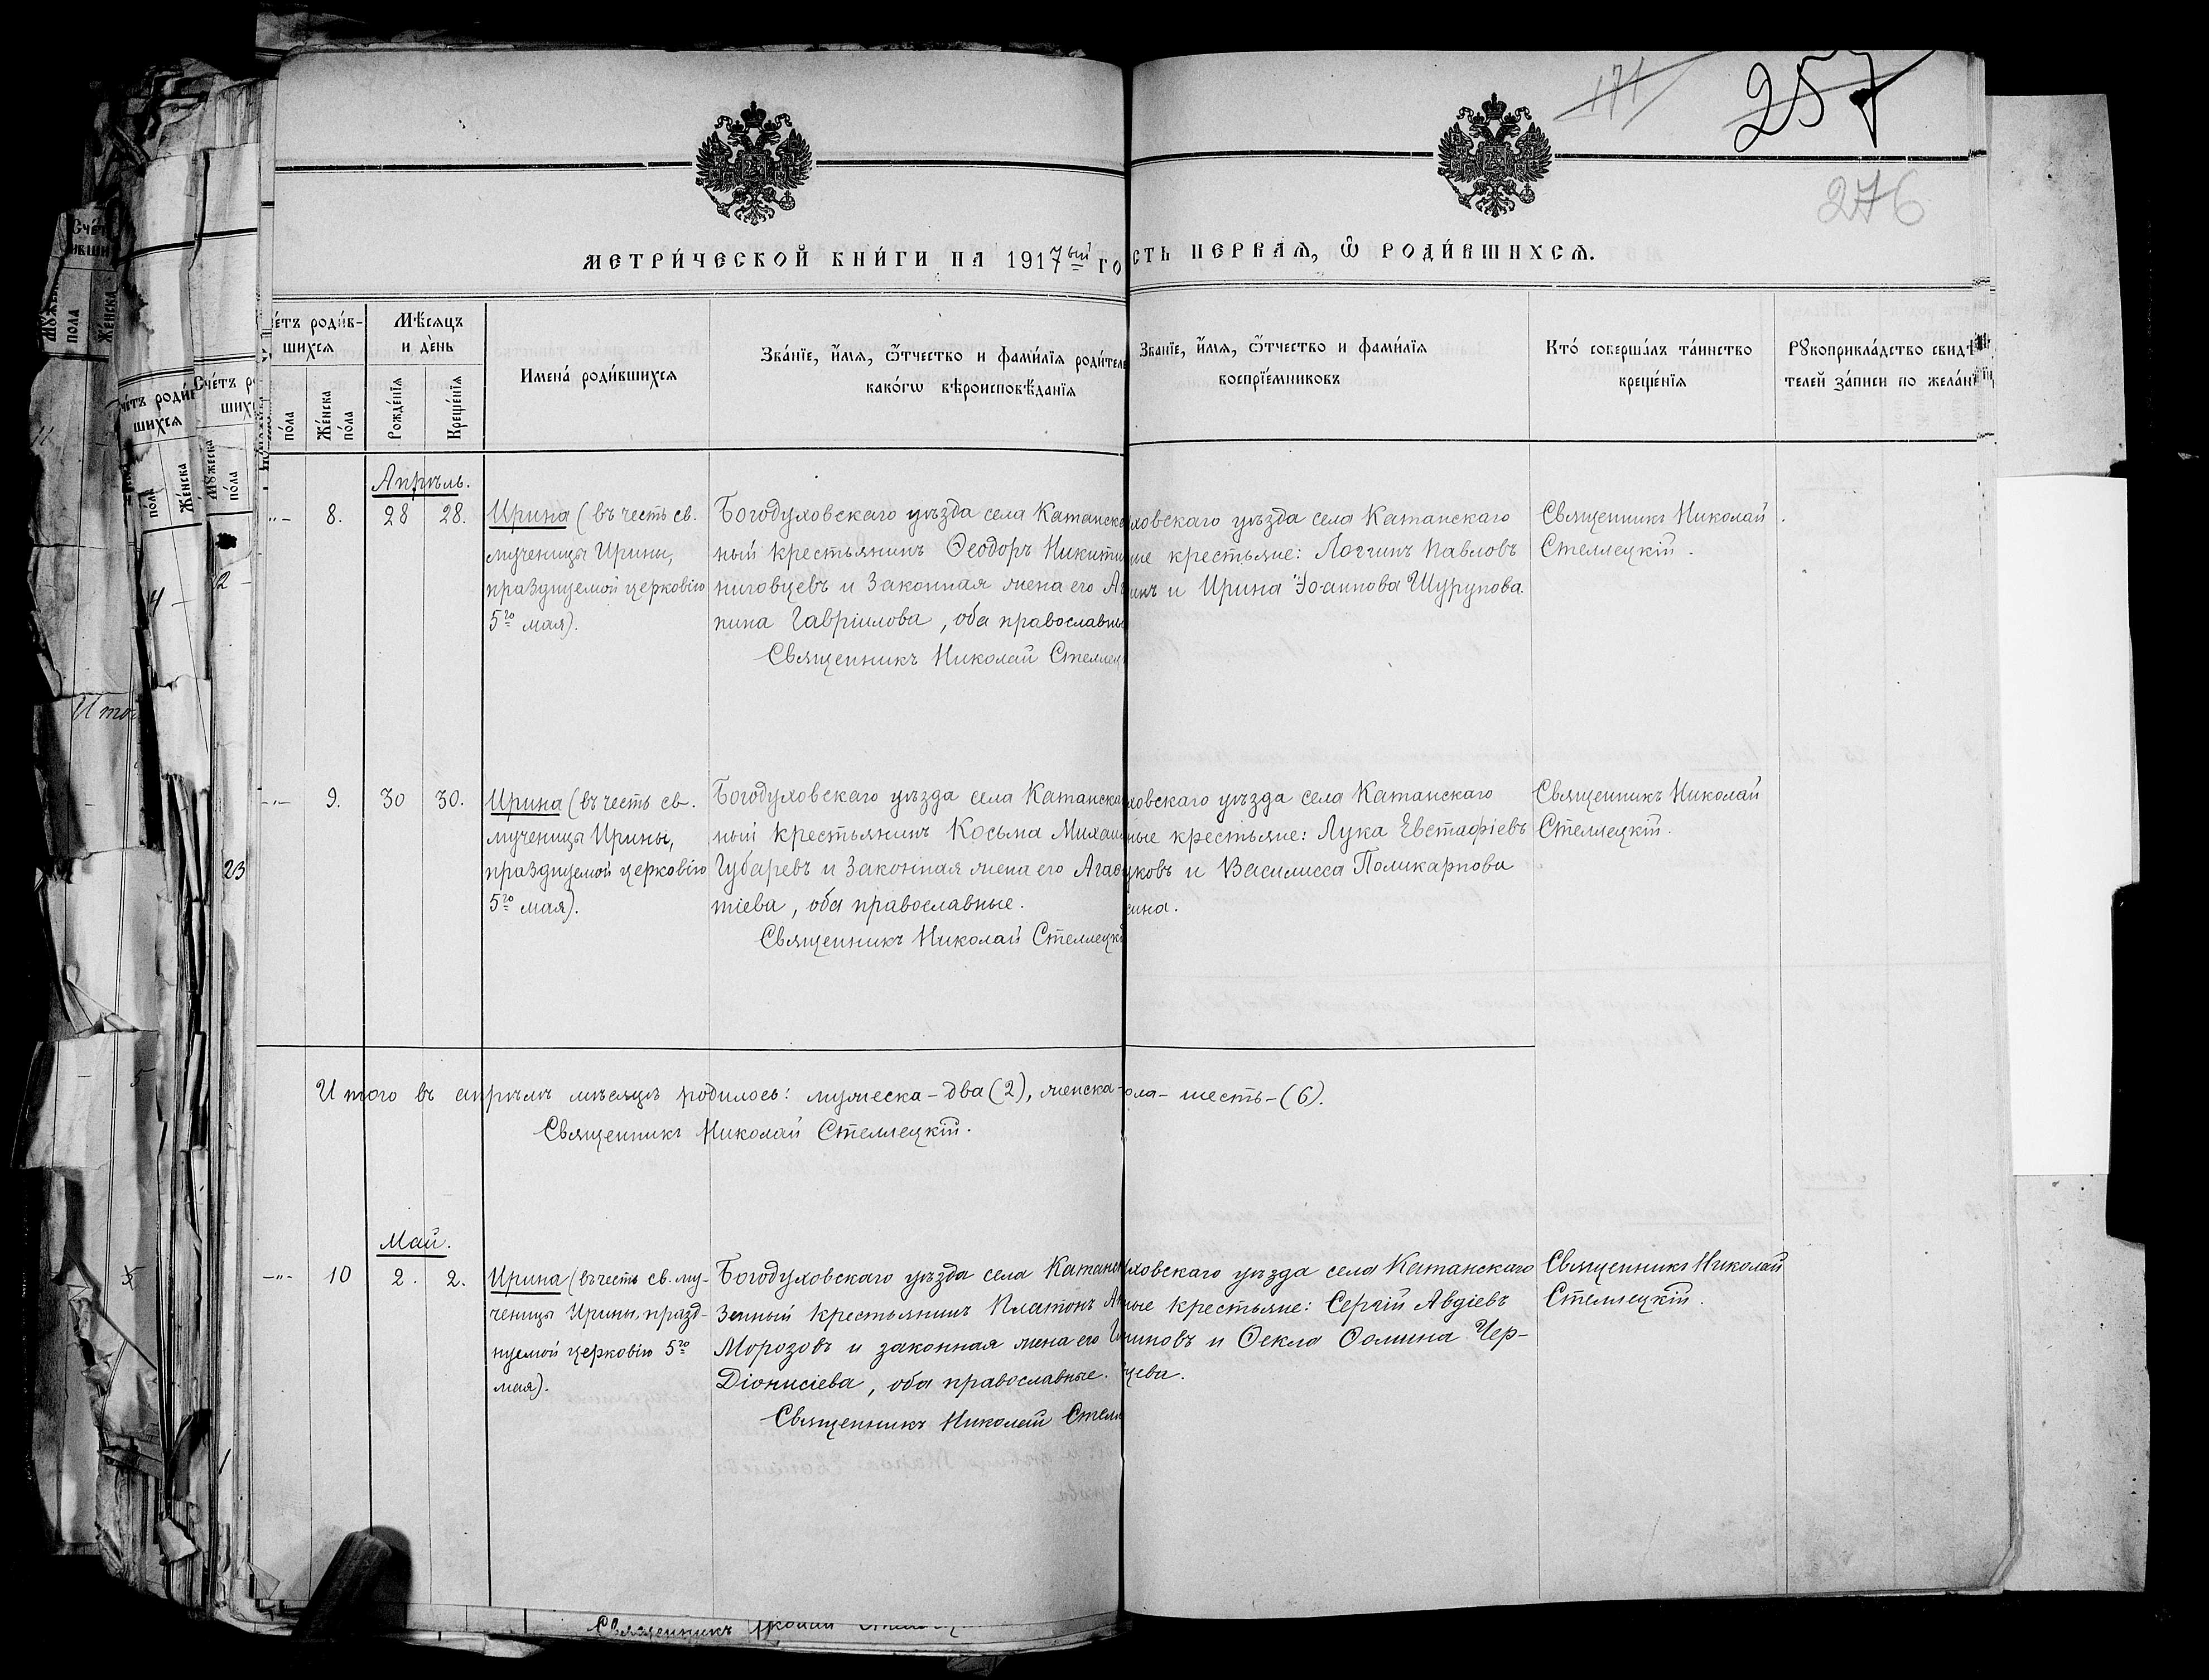 171
257
276
МЕТРИ́ЧЕСКОЙ КНИ́ГИ НА 1917ый ГО
СТЬ ПЕРВАѦ, Ѡ РОДИ́ВШИХСѦ.
е́тъ роди́в-
шихсѧ
Мѣ́сѧцъ
и де́нь
по́ла
Же́нска по́ла
Рожде́нїѧ
Креще́нїѧ
Имена́ роди́вшихсѧ
Зва́нїе, и҆́мѧ, ѻ҆́тчество и фами́лїѧ роди́теле
како́гѡ вѣроисповѣ́данїѧ
Зва́нїе, и҆́мѧ, ѻ҆́тчество и фами́лїѧ
воспрїе́мниковъ
Кто́ соверша́лъ та́инство
креще́нїѧ
Рꙋкоприкла́дство свидѣ́
телей за́писи по жела́нї
Апрѣль.
8. 28 28.
Ирина (въ честь св.
мученицы Ирины,
празднуемой церковію
5го мая).
Богодуховскаго уѣзда села Катанска
ный крестьянинъ Ѳеодоръ Никити
ниговцевъ и законная жена его Аг
пина Гавріилова, оба православны
Священникъ Николай Стеллец
ховскаго уѣзда села Катанскаго
ые крестьяне: Логгинъ Павловъ
инъ и Ирина Іоаннова Шурупова.
Священникъ Николай
Стеллецкій.
9. 30 30.
Ирина (въ честь св.
мученицы Ирины,
празднуемой церковію
5го мая).
Богодуховскаго уѣзда села Катанска
ный крестьянинъ Косьма Михаи
Губаревъ и законная жена его Агаѳ
тіева, оба православные.
Священникъ Николай Стеллецкі
ховскаго уѣзда села Катанскаго
ные крестьяне: Лука Евстафіевъ
уковъ и Василисса Поликарпова
ина.
Священникъ Николай
Стеллецкій.
Итого въ апрѣлѣ мѣсяцѣ родилось: мужеска – два (2), женска – ола – шесть – (6).
Священникъ Николай Стеллецкій.
Май.
10 2. 2.
Ирина (въ честь св. му-
ченицы Ирины, празд-
нуемой церковію 5го
мая).
Богодуховскаго уѣзда села Катанс
земный крестьянинъ Платонъ
Морозовъ и законная жена его
Діонисіева, оба православные.
Священникъ Николай Стелл
ховскаго уѣзда села Катанскаго
ные крестьяне: Сергій Авдіевъ
иновъ и Ѳекла Ѳомина Чер-
цева.
Священникъ Николай
Стеллецкій.